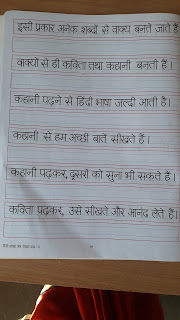 इसी प्रकार अनेक शब्दों से वाक्य बनते जाते हैं
वाक्यों से ही कविता तथा कहानी बनती हैं।
कहानी पढ़ने से हिंदी भाषा जल्दी आती है।
कहानी से हम अच्छी बातें सीखते हैं।
कहानी पढ़कर, दूसरों को सुना भी सकते हैं।
कविता पढ़कर, उसे सीखते और आनंद लेते हैं।